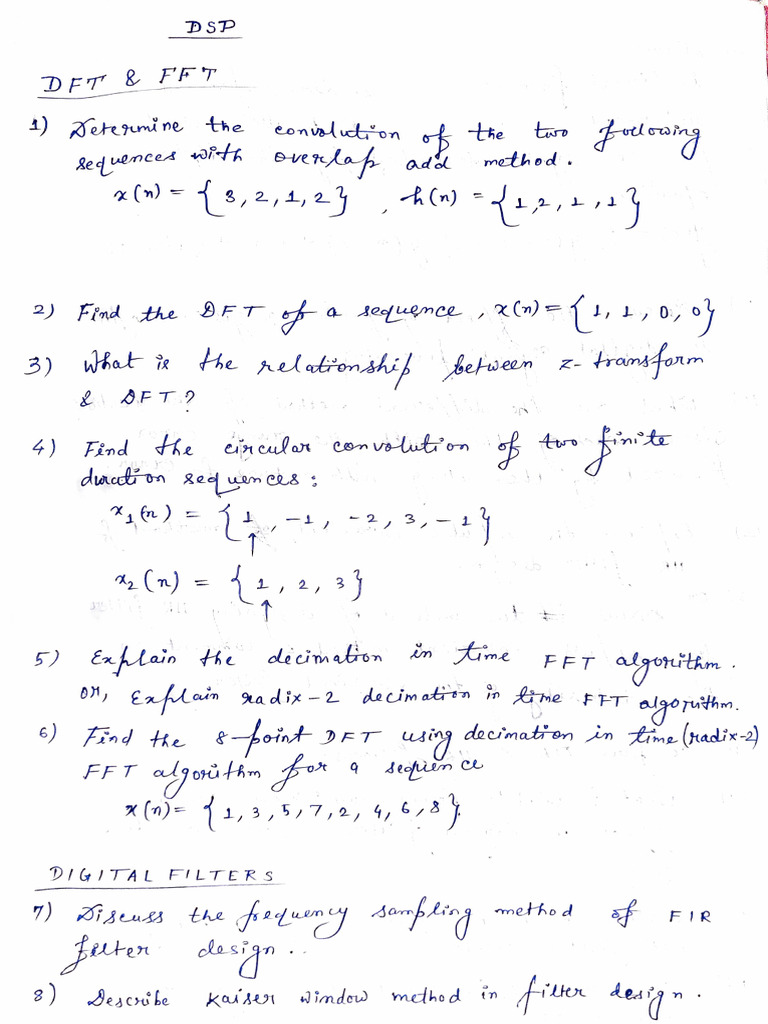 DSP
DFT & FFT
1) Determine the convolution of the two following
sequences with overlap add method.
x(n) = {3, 2, 1, 2} , h(n) = {1, 2, 1, 1}
2) Find the DFT of a sequence, x(n) = {1, 1, 0, 0}
3) What is the relationship between z-transform
& DFT?
4) Find the circular convolution of two finite
duration sequences :
x₁(n) = {1, -1, -2, 3, -1}
↑
x₂(n) = {1, 2, 3}
↑
5) Explain the decimation in time FFT algorithm.
or, Explain radix-2 decimation in time FFT algorithm.
6) Find the 8-point DFT using decimation in time (radix-2)
FFT algorithm for a sequence
x(n) = {1, 3, 5, 7, 2, 4, 6, 8}.
DIGITAL FILTERS
7) Discuss the frequency sampling method of FIR
filter design..
8) Describe Kaiser window method in filter design.